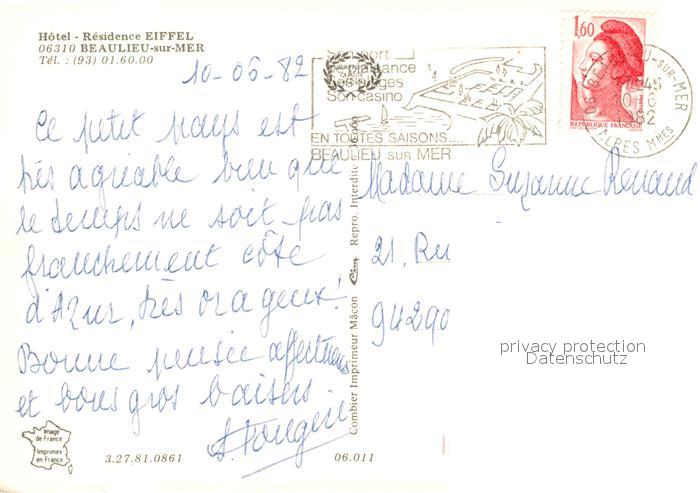 Hôtel - Résidence EIFFEL
06310 BEAULIEU-sur-MER
Tél. : (93) 01.60.00
10-06-82
Ce petit pays est
très agréable bien que
le temps ne soit pas
franchement côte
d'Azur, très orageux!
Bonne pensée affectueuse
et bons gros baisers.
Image
de France
Imprimée
en France
3.27.81.0861
06.011
Combier Imprimeur Mâcon Cim Repro. Interdite
Son port
de plaisance
Ses plages
Son casino
EN TOUTES SAISONS....
BEAULIEU sur MER
1,60
REPUBLIQUE FRANÇAISE
06 BEAULIEU-SUR-MER
ALPES MMES
Madame Suzanne Renaud
21, Ru
94290
privacy protection
Datenschutz